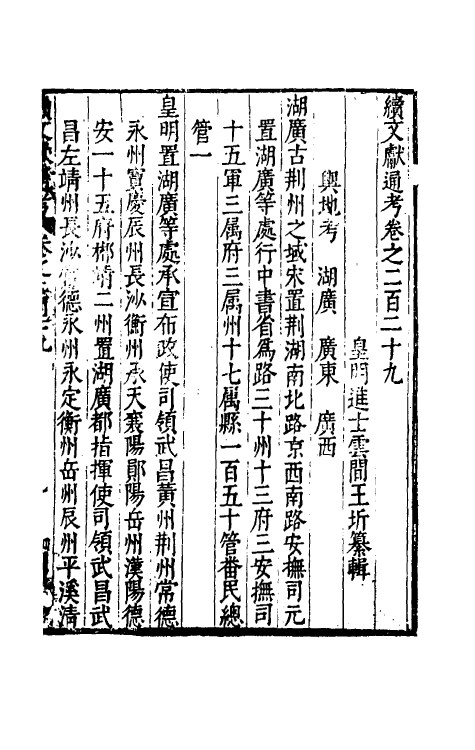 續文獻通考卷之二百二十九
皇明進士雲間王圻纂輯
輿地考 湖廣 廣東 廣西
湖廣古荆州之域宋置荆湖南北路京西南路安撫司元
置湖廣等處行中書省爲路三十州十三府三安撫司
十五軍三属府三属州十七属縣一百五十管番民總
管一
皇明置湖廣等處承宣布政使司領武昌黄州荆州常德
永州寶慶辰州長沙衡州承天襄陽鄖陽岳州漢陽德
安一十五府郴靖二州置湖廣都指揮使司領武昌武
昌左靖州長沙常德永州永定衡州岳州辰州平溪清